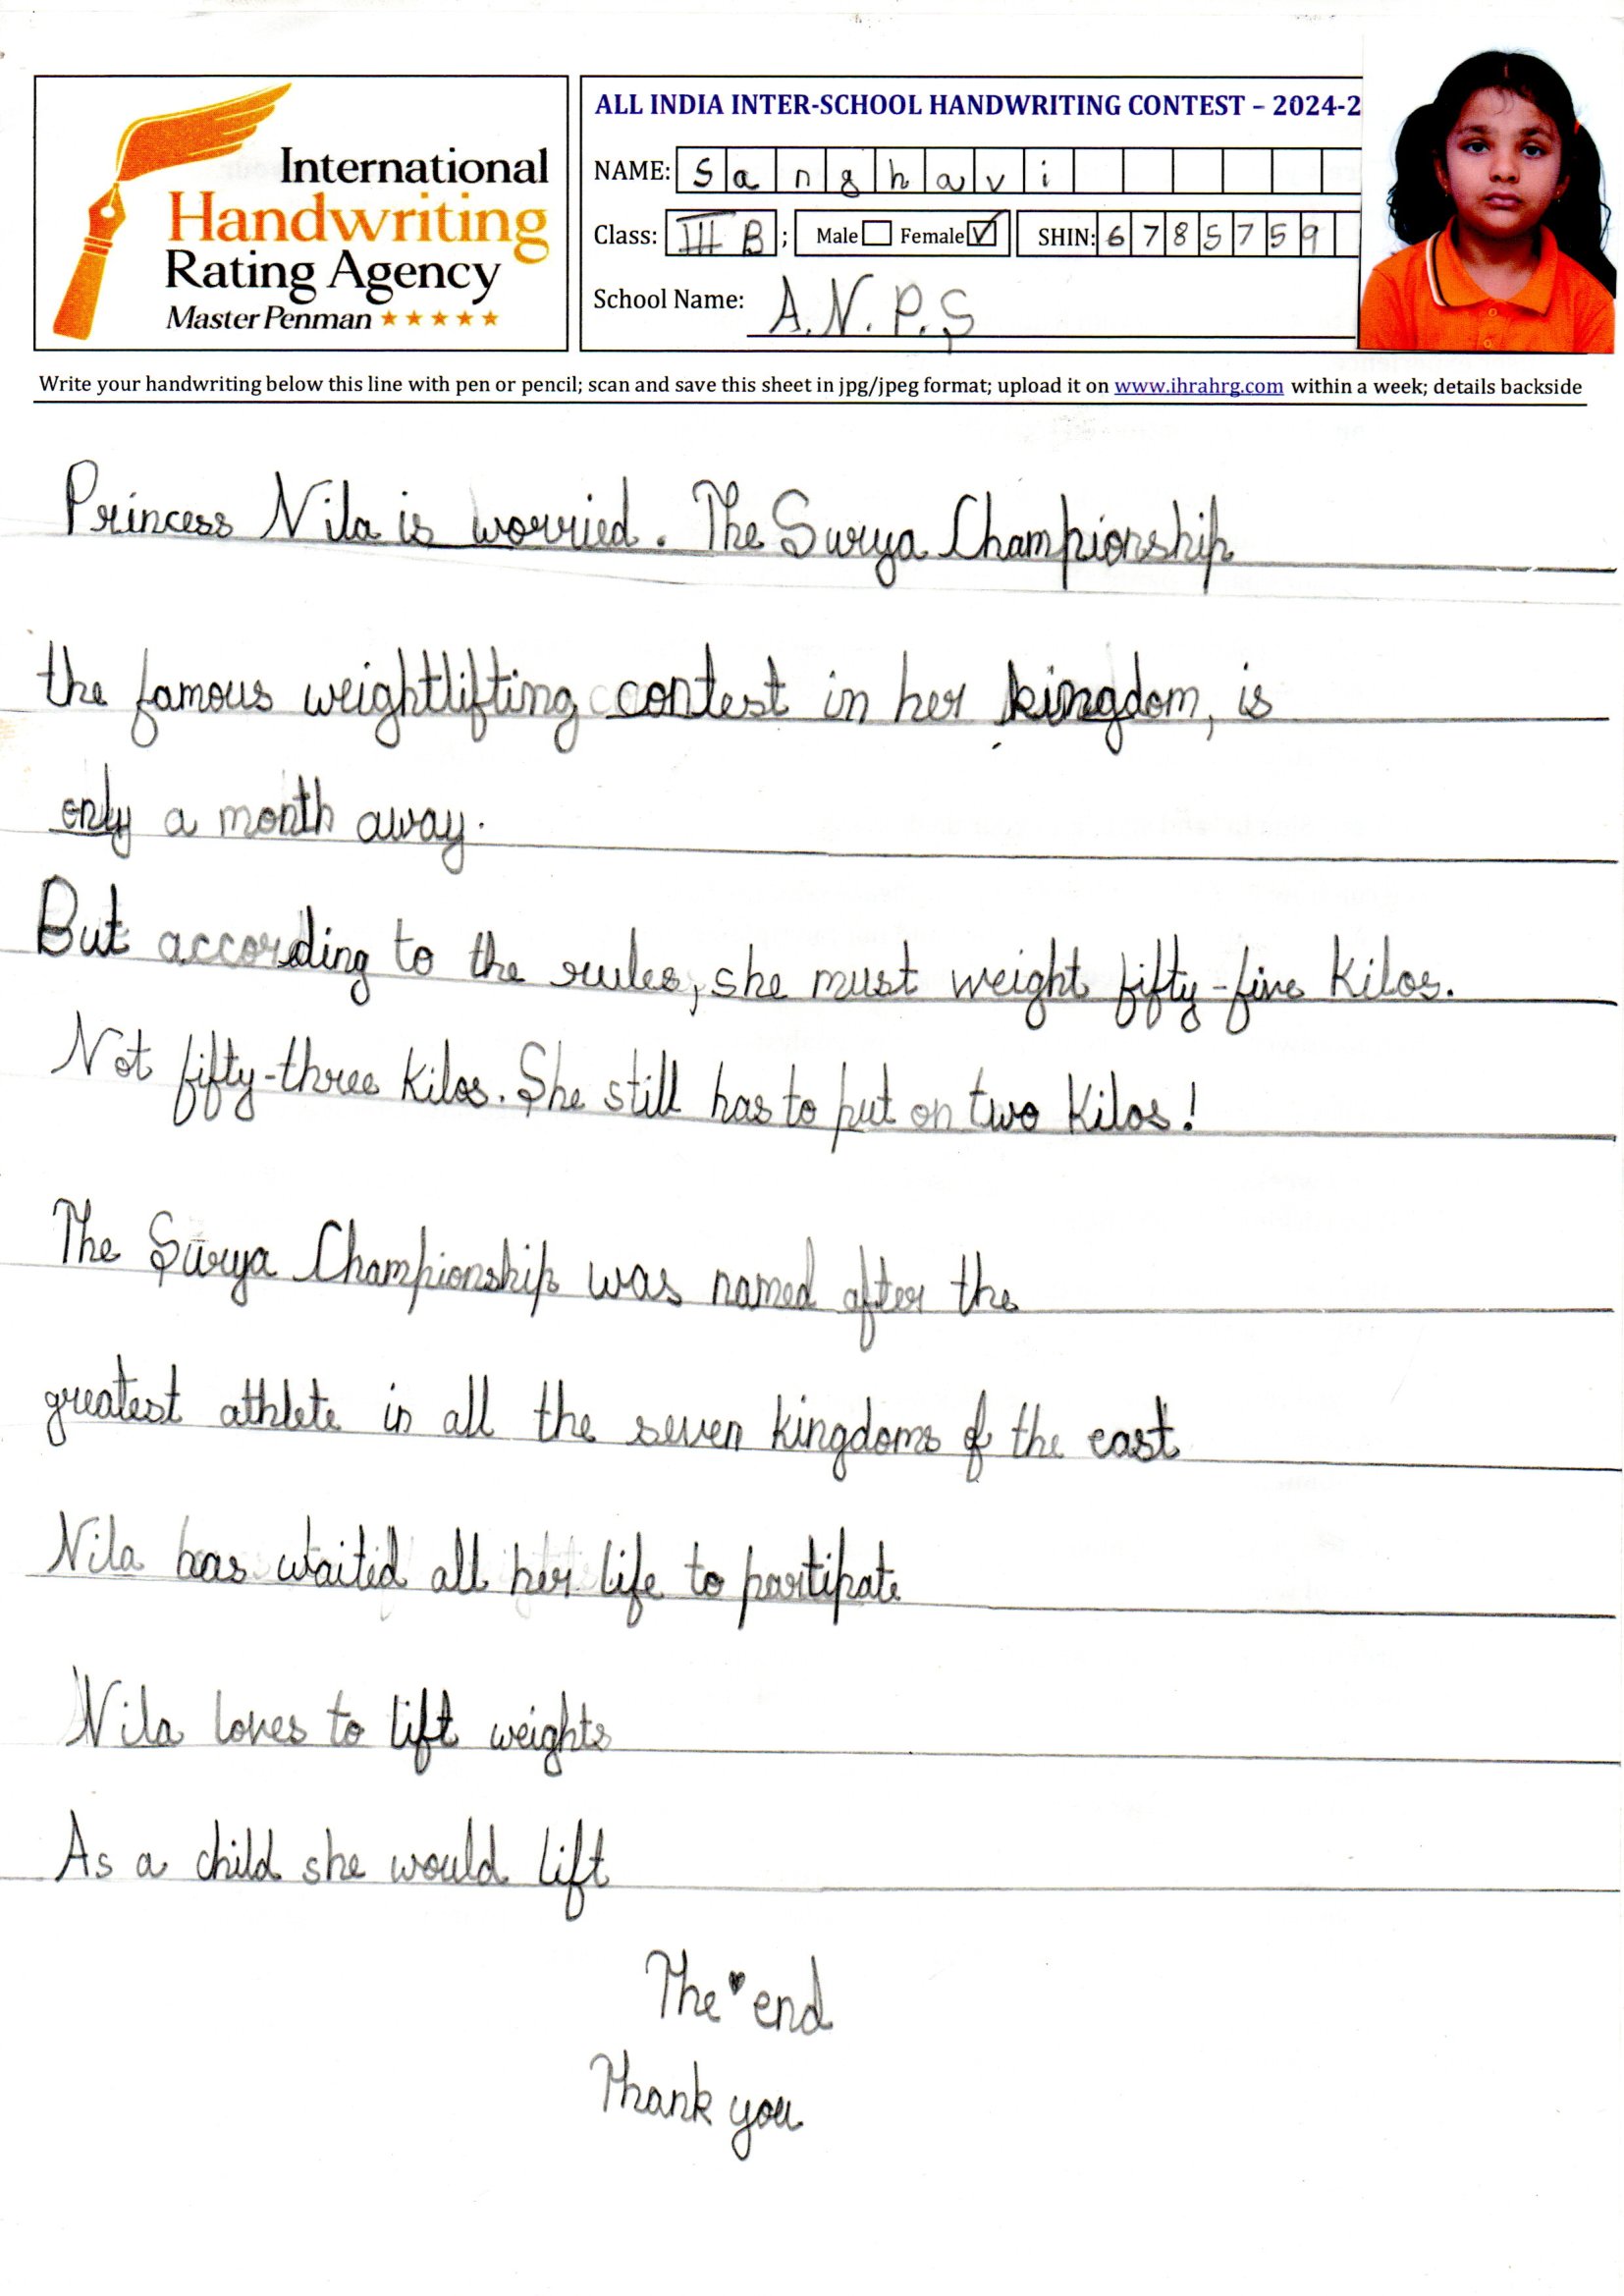 International
Handwriting
Rating Agency
Master Penman
ALL INDIA INTER-SCHOOL HANDWRITING CONTEST – 2024-2
NAME: Sanghavi
Class: III B; Male Female SHIN: 6785759
School Name: A.N.P.S
Write your handwriting below this line with pen or pencil; scan and save this sheet in jpg/jpeg format; upload it on www.ihrahrg.com within a week; details backside
Princess Nila is worried. The Surya Championship
the famous weightlifting contest in her kingdom, is
only a month away.
But according to the rules, she must weight fifty-five kilos.
Not fifty-three kilos. She still has to put on two kilos!
The Surya Championship was named after the
greatest athlete in all the seven kingdoms of the east
Nila has waited all her life to partipate
Nila loves to lift weights
As a child she would lift
The end
Thank you